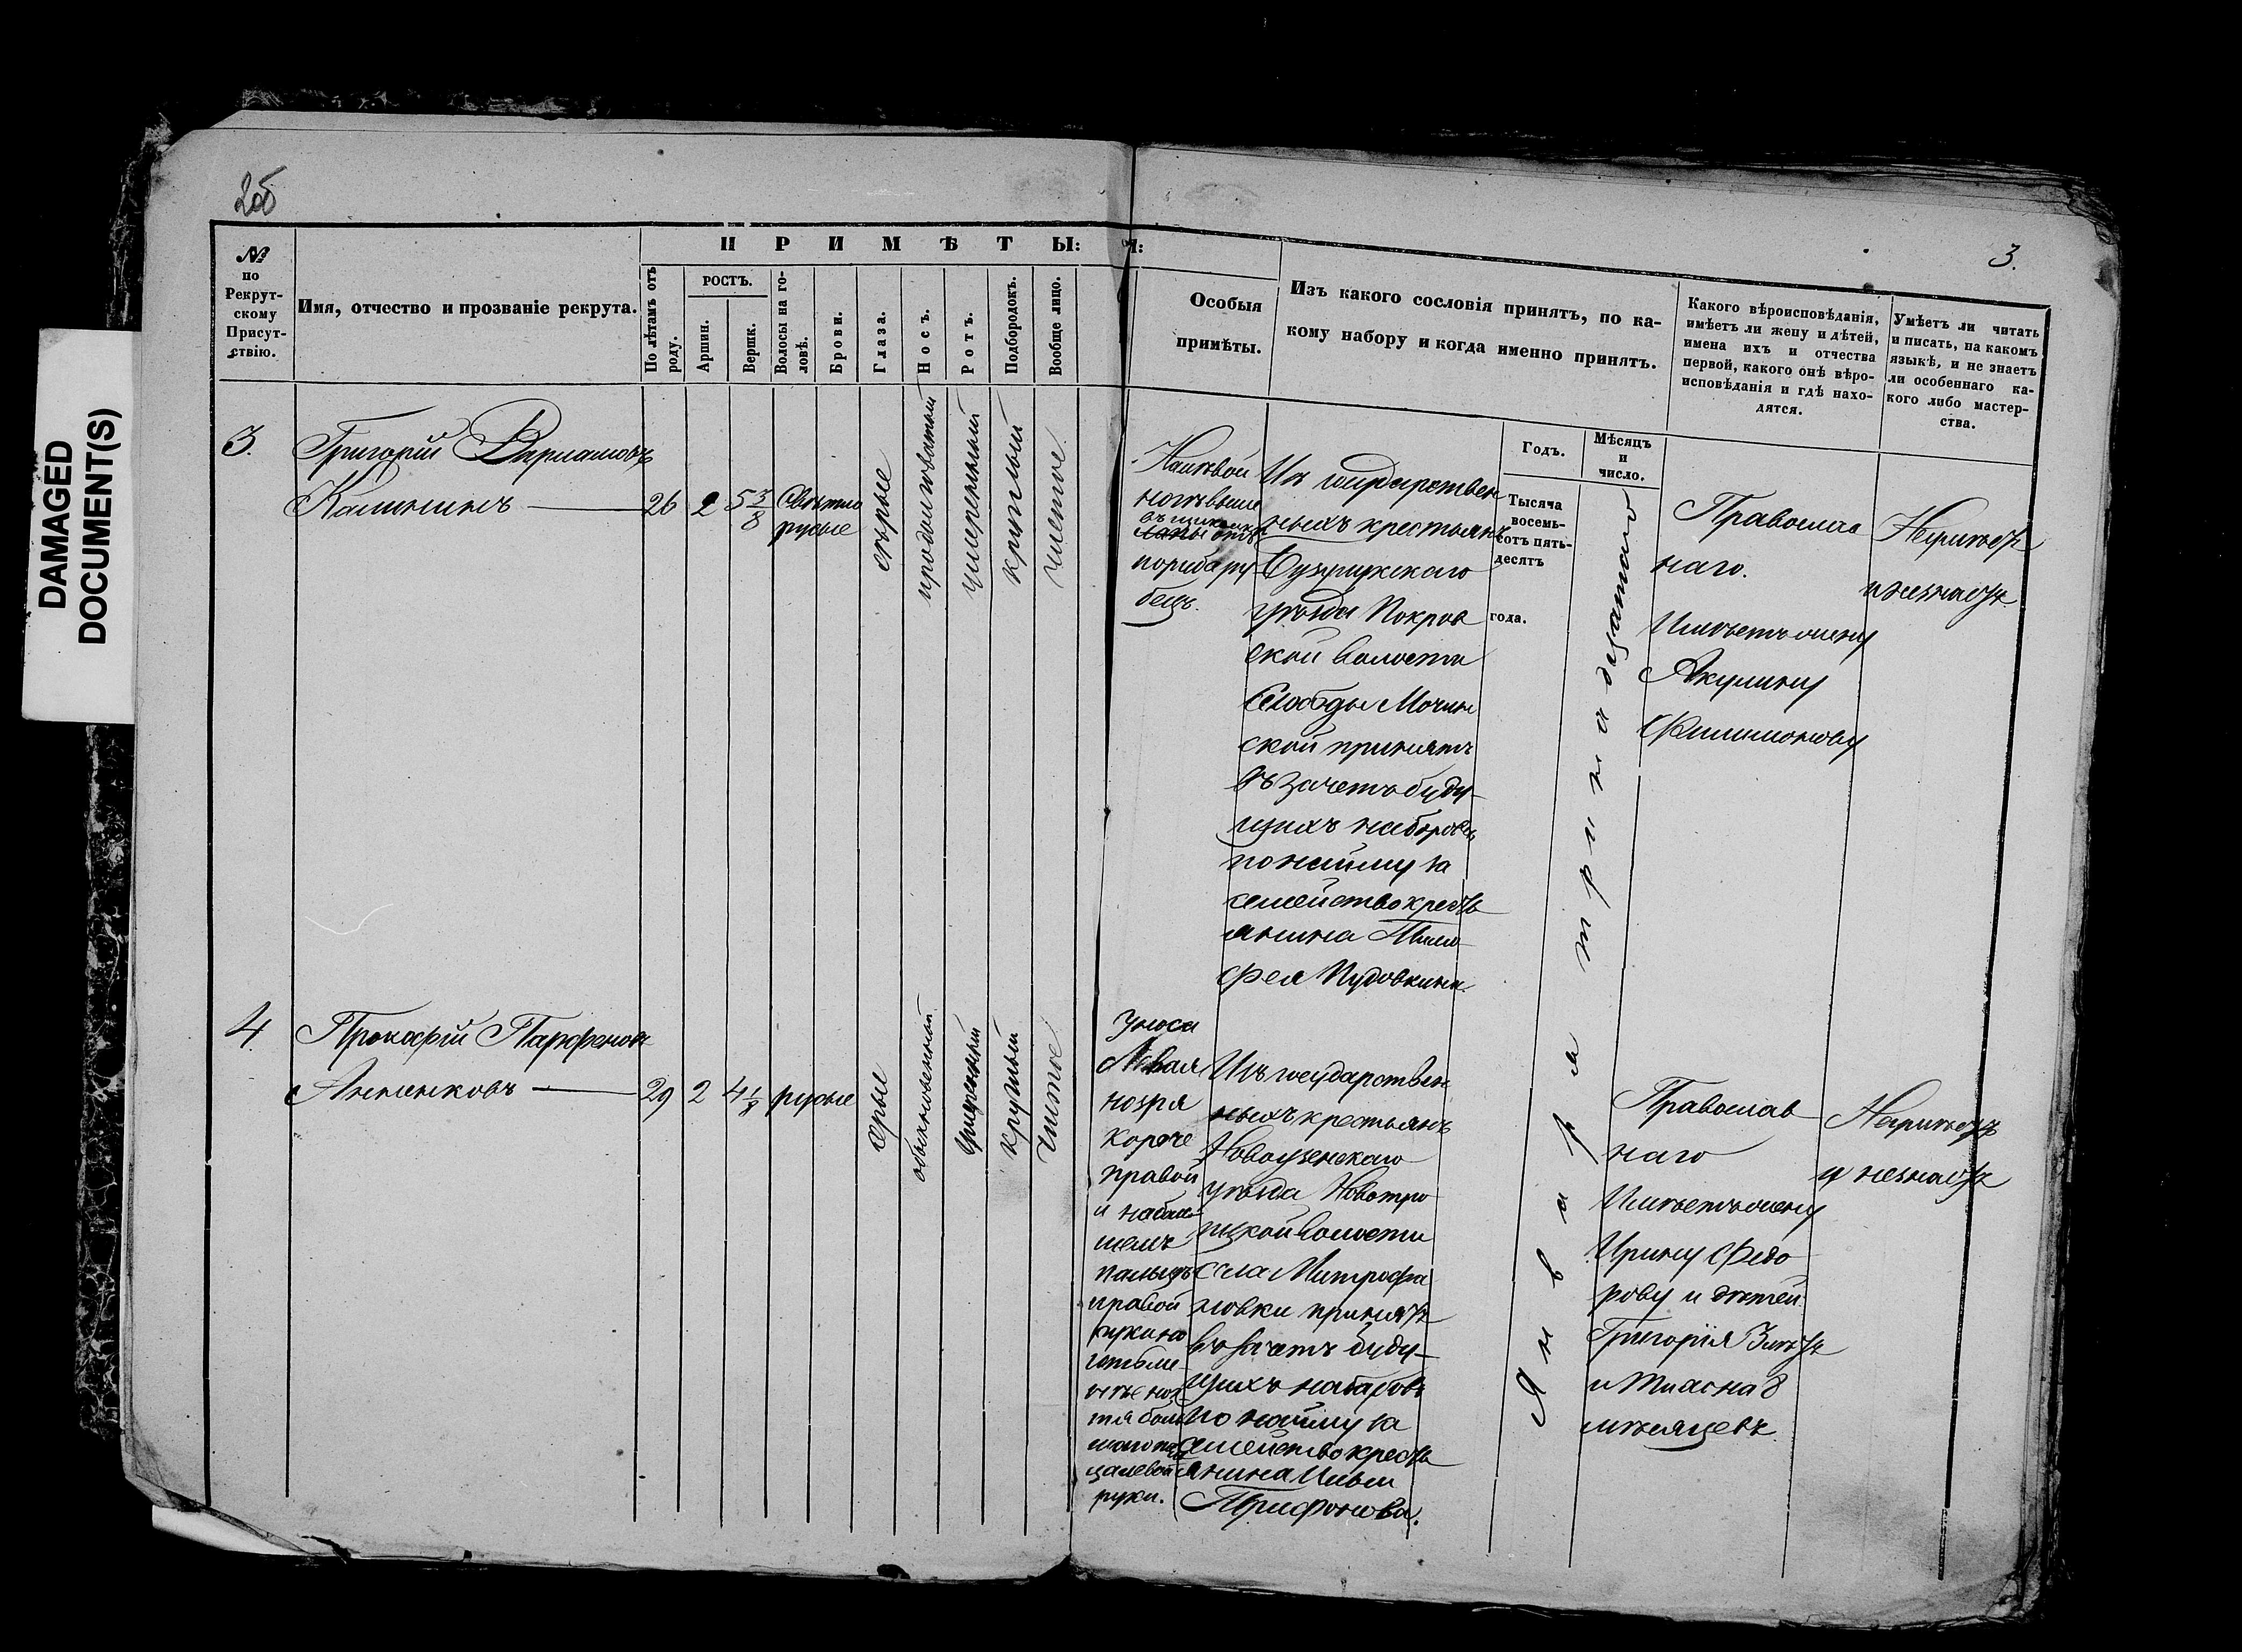 DAMAGED
DOCUMENT(S)
2об
3.
№
по
Рекрут-
скому
Присут-
ствію.
Имя, отчество и прозваніе рекрута.
ПРИМѢТЫ:
По лѣтамъ отъ
роду.
РОСТЪ.
Аршин.
Вершк.
Волосы на го-
ловѣ.
Брови.
Глаза.
Носъ.
Ротъ.
Подбородокъ.
Вообще лицо.
Особыя
примѣты.
Изъ какого сословія принятъ, по ка-
кому набору и когда именно принятъ.
Какого вѣроисповѣданія,
имѣетъ ли жену и дѣтей,
имена ихъ и отчества
первой, какого онѣ вѣро-
исповѣданія и гдѣ нахо-
дятся.
Умѣетъ ли читать
и писать, на какомъ
языкѣ, и не знаетъ
ли особеннаго ка-
кого либо мастер-
ства.
Годъ.
Мѣсяцъ
и
число.
Тысяча
восемь-
сотъ пять-
десятъ
года.
Января тринадцатаго
3.
Григорій
Калининъ
26
2
5 3/8
Свѣтло
русые
сѣрые
продолговатый
умеренный
круглый
чистое
На лѣвой
ногѣ выше
рубецъ.
Изъ государствен
ныхъ крестьянъ
Бузулукскаго
уѣзда Покров
ской волости
Слободы Мочин
ской принятъ
въ зачетъ буду-
щихъ наборовъ
по найму за
семейство кресть
янина Тимо
фея Пудовкина.
Православ
наго.
Имѣетъ жену
Акулину
Филимонову
Неумѣетъ
и незнаетъ
4.
Прокофій Парфеновъ
Анненковъ
29
2
4 1/8
русые
серые
обыкновенный
умеренный
круглый
чистое
У носа
Левая
ноздря
короче
правой
и на боль
шомъ
пальцѣ
правой
руки.
Изъ государствен
ныхъ крестьянъ
Новоузенскаго
уѣзда Новотро
ицкой волости
села Митрофа
новки принятъ
въ зачетъ буду-
щихъ наборовъ
по найму за
семейство кресть
янина Ильи
Трифонова.
Православ
наго
Имѣетъ жену
Ирину Федо
рову и дѣтей
Григорія 3 лѣтъ
и 8
мѣсяцевъ
Неумѣетъ
и незнаетъ